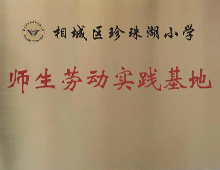 相城区珍珠湖小学
师生劳动实践基地